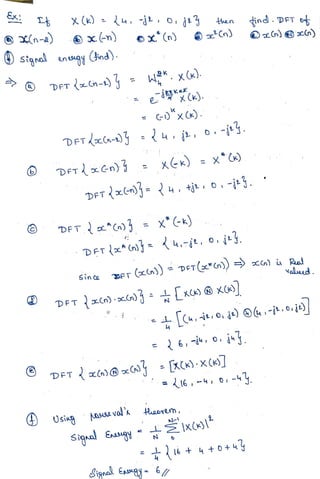 Ex: If X(k) = {4, -j2, 0, j2} then find. DFT of
ⓐ x(n-2) ⓑ x(-n) ⓒ x*(n) ⓓ x²(n) ⓔ x(n) Ⓝ x(n)
ⓕ signal energy (find).
⇒ ⓐ DFT {x(n-2)} = W₄^{2k} . X(k).
= X(k).
= (-1)^k X(k).
DFT {x(n-2)} = {4, j2, 0, -j2}.
ⓑ DFT {x(-n)} = X(-k) = X*(k)
DFT {x(-n)} = {4, +j2, 0, -j2}.
ⓒ DFT {x*(n)} = X*(-k)
DFT {x*(n)} = {4, -j2, 0, j2}.
since DFT (x(n)) = DFT(x*(n)) ⇒ x(n) is Real
valued.
ⓓ DFT {x(n).x(n)} = 1/N [X(k) Ⓝ X(k)]
= 1/4 [(4, -j2, 0, j2) ④ (4, -j2, 0, j2)]
= {6, -j4, 0, j4}.
ⓔ DFT {x(n) Ⓝ x(n)} = [X(k).X(k)]
= {16, -4, 0, -4}.
ⓕ Using parseval's theorem,
Signal Energy = 1/N Σ |X(k)|²
= 1/4 {16 + 4 + 0 + 4}
Signal Energy = 6 //